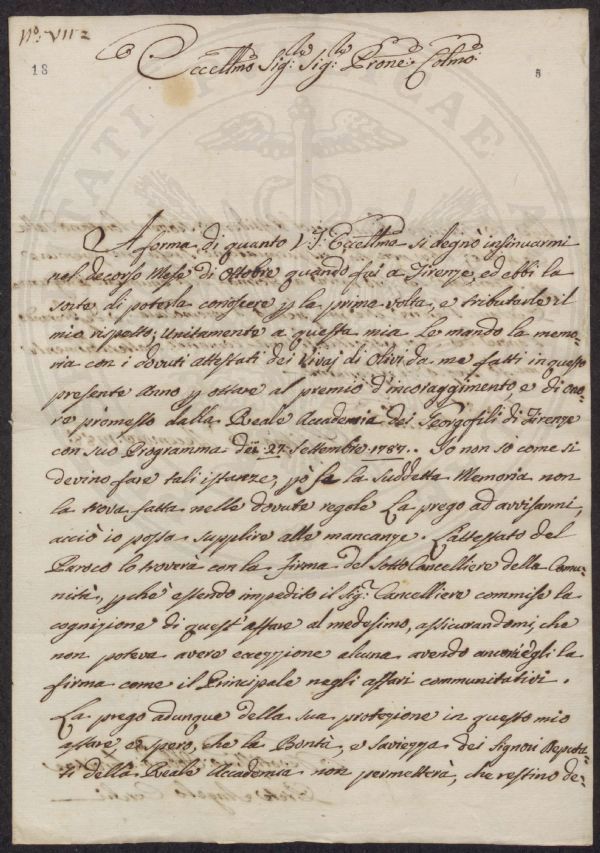 N.º VII=
18
8
Eccellmo Sig:le Sig:le Prone Colmo
A forma di quanto V. S. Eccellmo si degnò insinuarmi
nel decorso Mese di Ottobre quando fui a Firenze, ed ebbi la
sorte di poterla conoscere p la prima volta, e tributarle il
mio rispetto; Unitamente a questa mia Le mando la memo=
ria con i dovuti attestati dei Vivaj di Olivi da me fatti in questo
presente Anno p ottare al premio d'incoraggimento, e di oro
promesso dalla Reale Accademia dei Georgofili di Firenze
con suo Programma dei 27. Settembre 1787.. Io non so come si
devino fare tali istanze, pò se la suddetta Memoria non
la trova fatta nelle dovute regole La prego ad avvisarmi,
acciò io possa supplire alle mancanze. L'attestato del
Paroco lo troverà con la firma del Sotto Cancelliere della Comu=
nità, pchè essendo impedito il Sig.r Cancelliere commise la
cognizione di quest'affare al medesimo, assicurandomi, che
non poteva avere eccezzione alcuna avendo ancor'egli la
firma come il Principale negli affari communitativi.
La prego adunque della sua protezione in questo mio
affare, e spero, che la Bontà, e saviezza dei Signori Deputa=
ti della Reale Accademia non permetterà, che restino de=